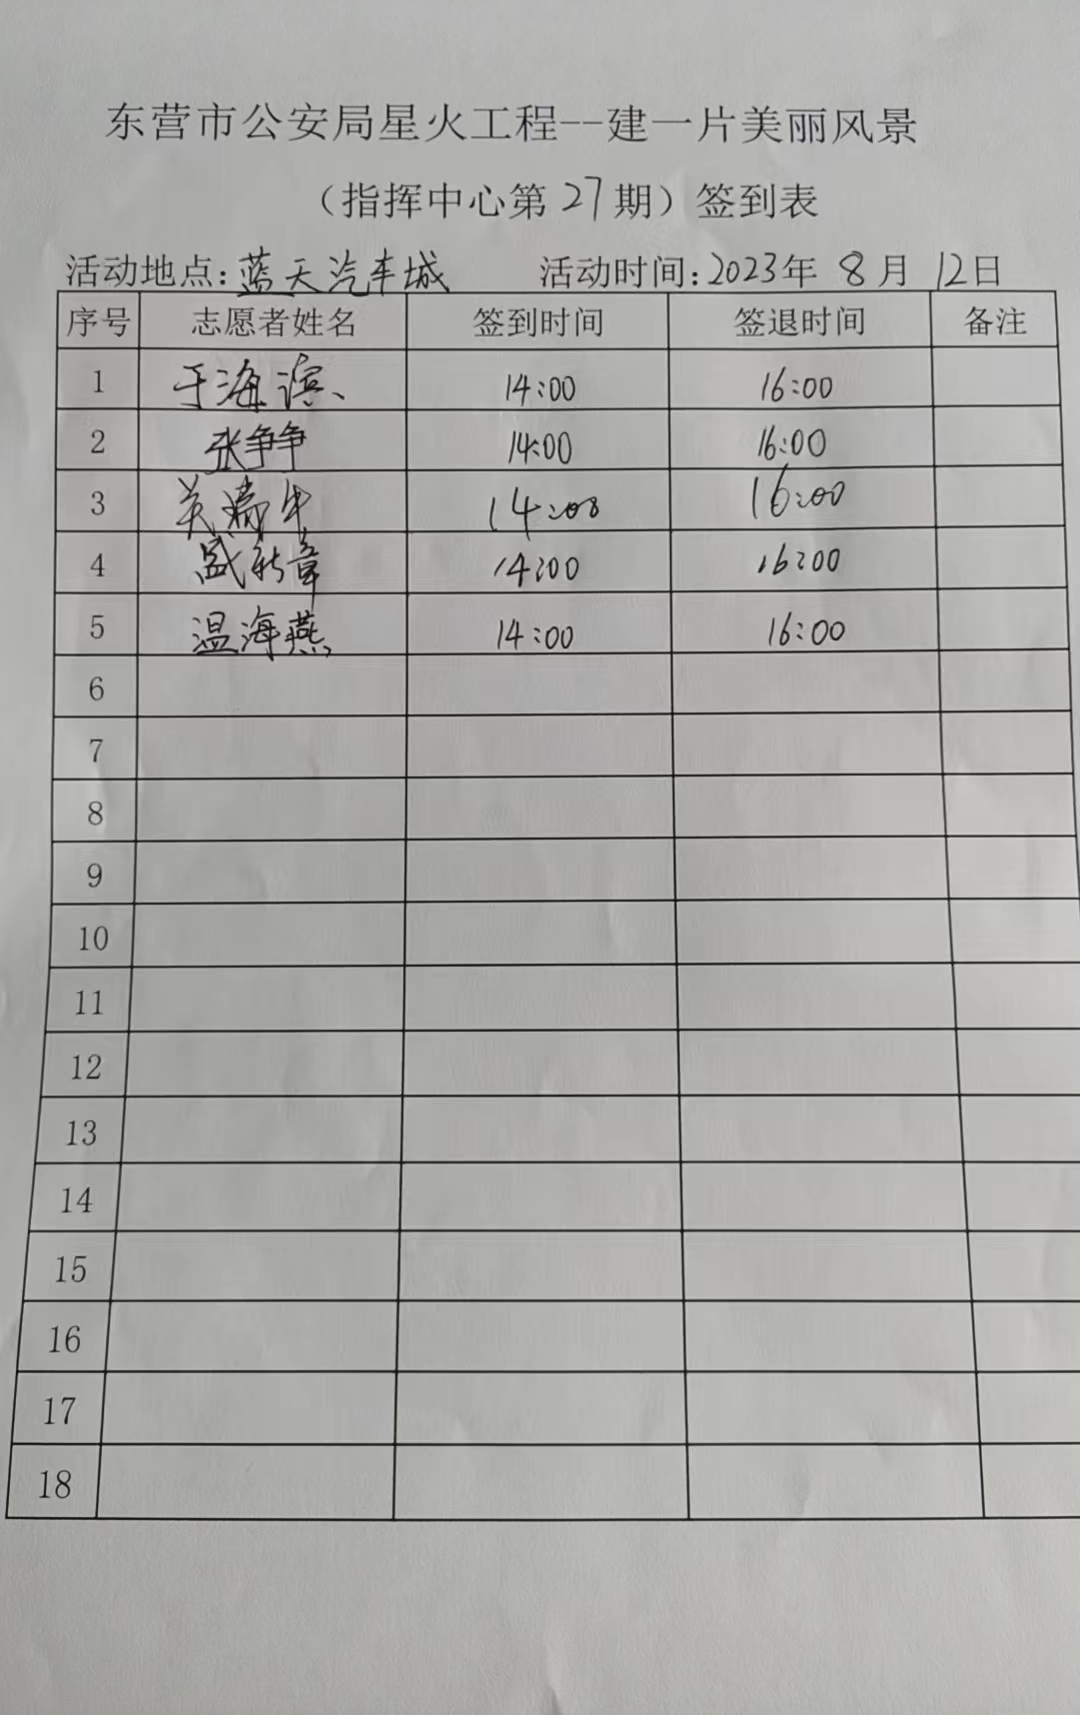 东营市公安局星火工程--建一片美丽风景
（指挥中心第27期）签到表
活动地点：蓝天汽车城 活动时间：2023年 8月 12日
序号 志愿者姓名 签到时间 签退时间 备注
1 于海滨、 14:00 16:00
2 张争争 14:00 16:00
3 14:00 16:00
4 盛新章 14:00 16:00
5 温海燕 14:00 16:00
6
7
8
9
10
11
12
13
14
15
16
17
18